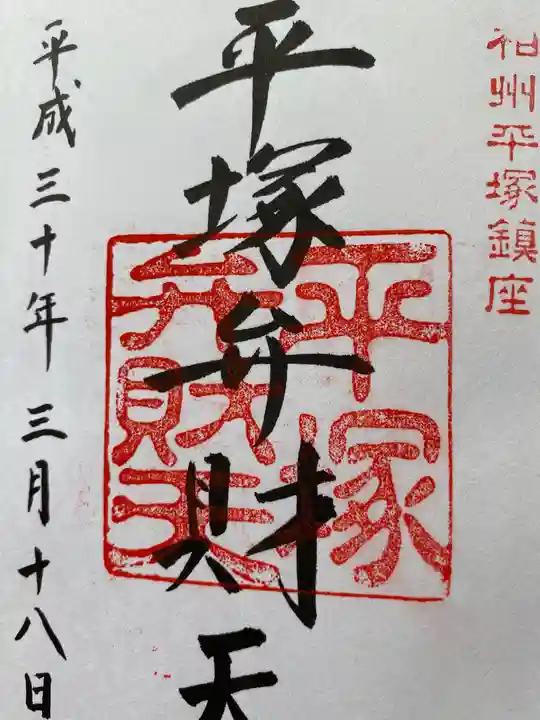 相州平塚鎮座
平塚弁財天
平塚
弁財天
平成三十年三月十八日